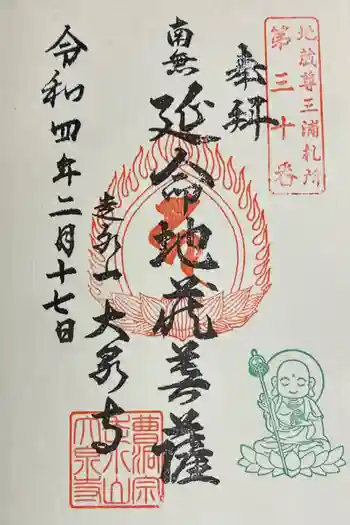 地蔵尊三浦札所
第三十番
奉拝
南無
延命地蔵菩薩
大泉寺
令和四年二月十七日
曹洞宗
大泉寺